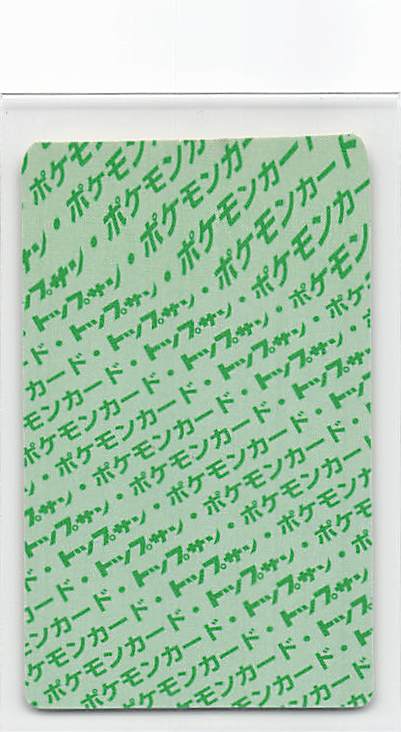 ポケモ
・ポケモンカ
サン・ポケモンカ
トップサン・ポケモンカード
ド・トップサン・ポケモンカード
カード・トップサン・ポケモンカー
モンカード・トップサン・ポケモン
ポケモンカード・トップサン・ポケ
・ポケモンカード・トップサン・
サン・ポケモンカード・トップサン
トップサン・ポケモンカード・トッ
・トップサン・ポケモンカード・
ード・トップサン・ポケモンカード
ンカード・トップサン・ポケモン
ケモンカード・トップサン・ポ
ポケモンカード・トップサン
ポケモンカード・ト
ポケモンカ